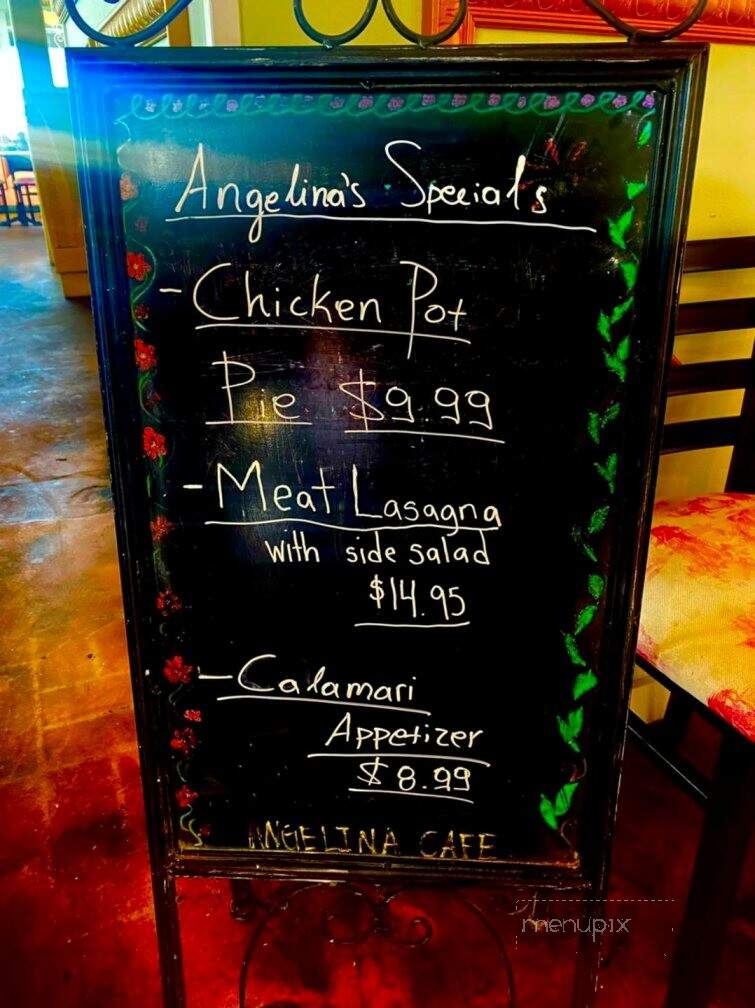 Angelina's Specials
- Chicken Pot
Pie $9.99
- Meat Lasagna
with side salad
$14.95
- Calamari
Appetizer
$8.99
ANGELINA CAFE
menupix